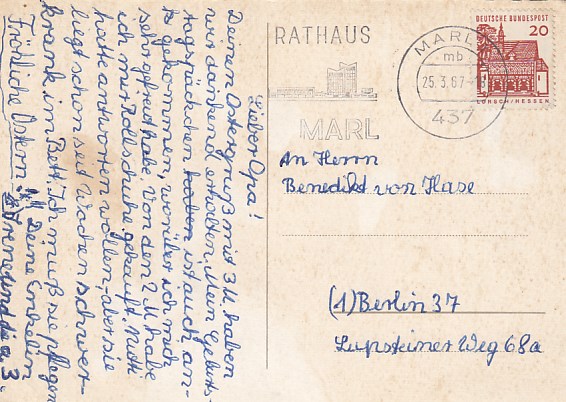 Lieber Opa!
Deinen Ostergruß mit 3 M haben
wir dankend erhalten. Mein Geburts-
tagspäckchen haben ist auch an-
gekommen, worüber ich mich
sehr gefreut habe. Von den 2 M habe
ich mir Rollschuhe gekauft. Mutti
hatte antworten wollen, aber sie
liegt schon seit Wochen schwer-
krank im Bett. Ich muß sie pflegen
Fröhliche Ostern!!! Deine Enkelin
Irene und die a. 3.
RATHAUS
MARL
MARL
mb
25.3.67
437
DEUTSCHE BUNDESPOST
20
LORSCH/HESSEN
An Herrn
Benedikt von Hase
(1) Berlin 37
Lupsteiner Weg 68a